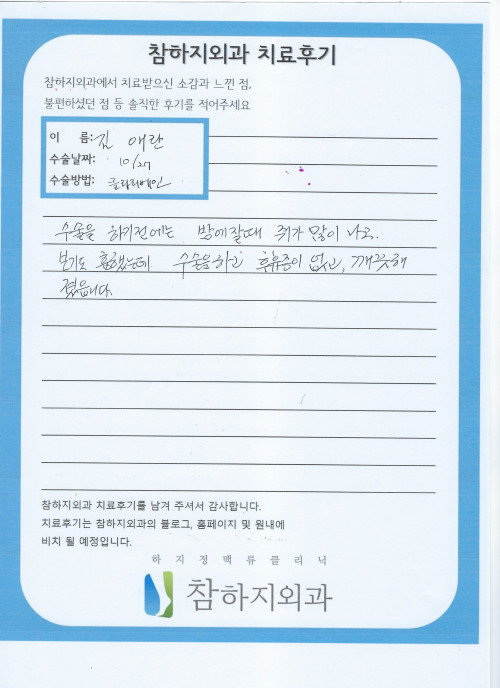 참하지외과 치료후기
참하지외과에서 치료받으신 소감과 느낀 점,
불편하셨던 점 등 솔직한 후기를 적어주세요
이 름: 김 애란
수술날짜: 10/27
수술방법: 클라리베인
수술을 하기전에는 밤에잘때 쥐가 많이 나고.
보기도 흉했는데 수술을하고 후유증이 없고, 깨끗해
졌읍니다.
참하지외과 치료후기를 남겨 주셔서 감사합니다.
치료후기는 참하지외과의 블로그, 홈페이지 및 원내에
비치 될 예정입니다.
하지정맥류클리닉
참하지외과